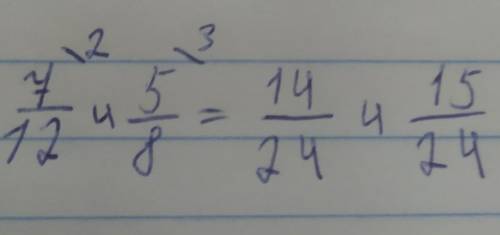 7/12 \2 и 5/8 \3 = 14/24 и 15/24